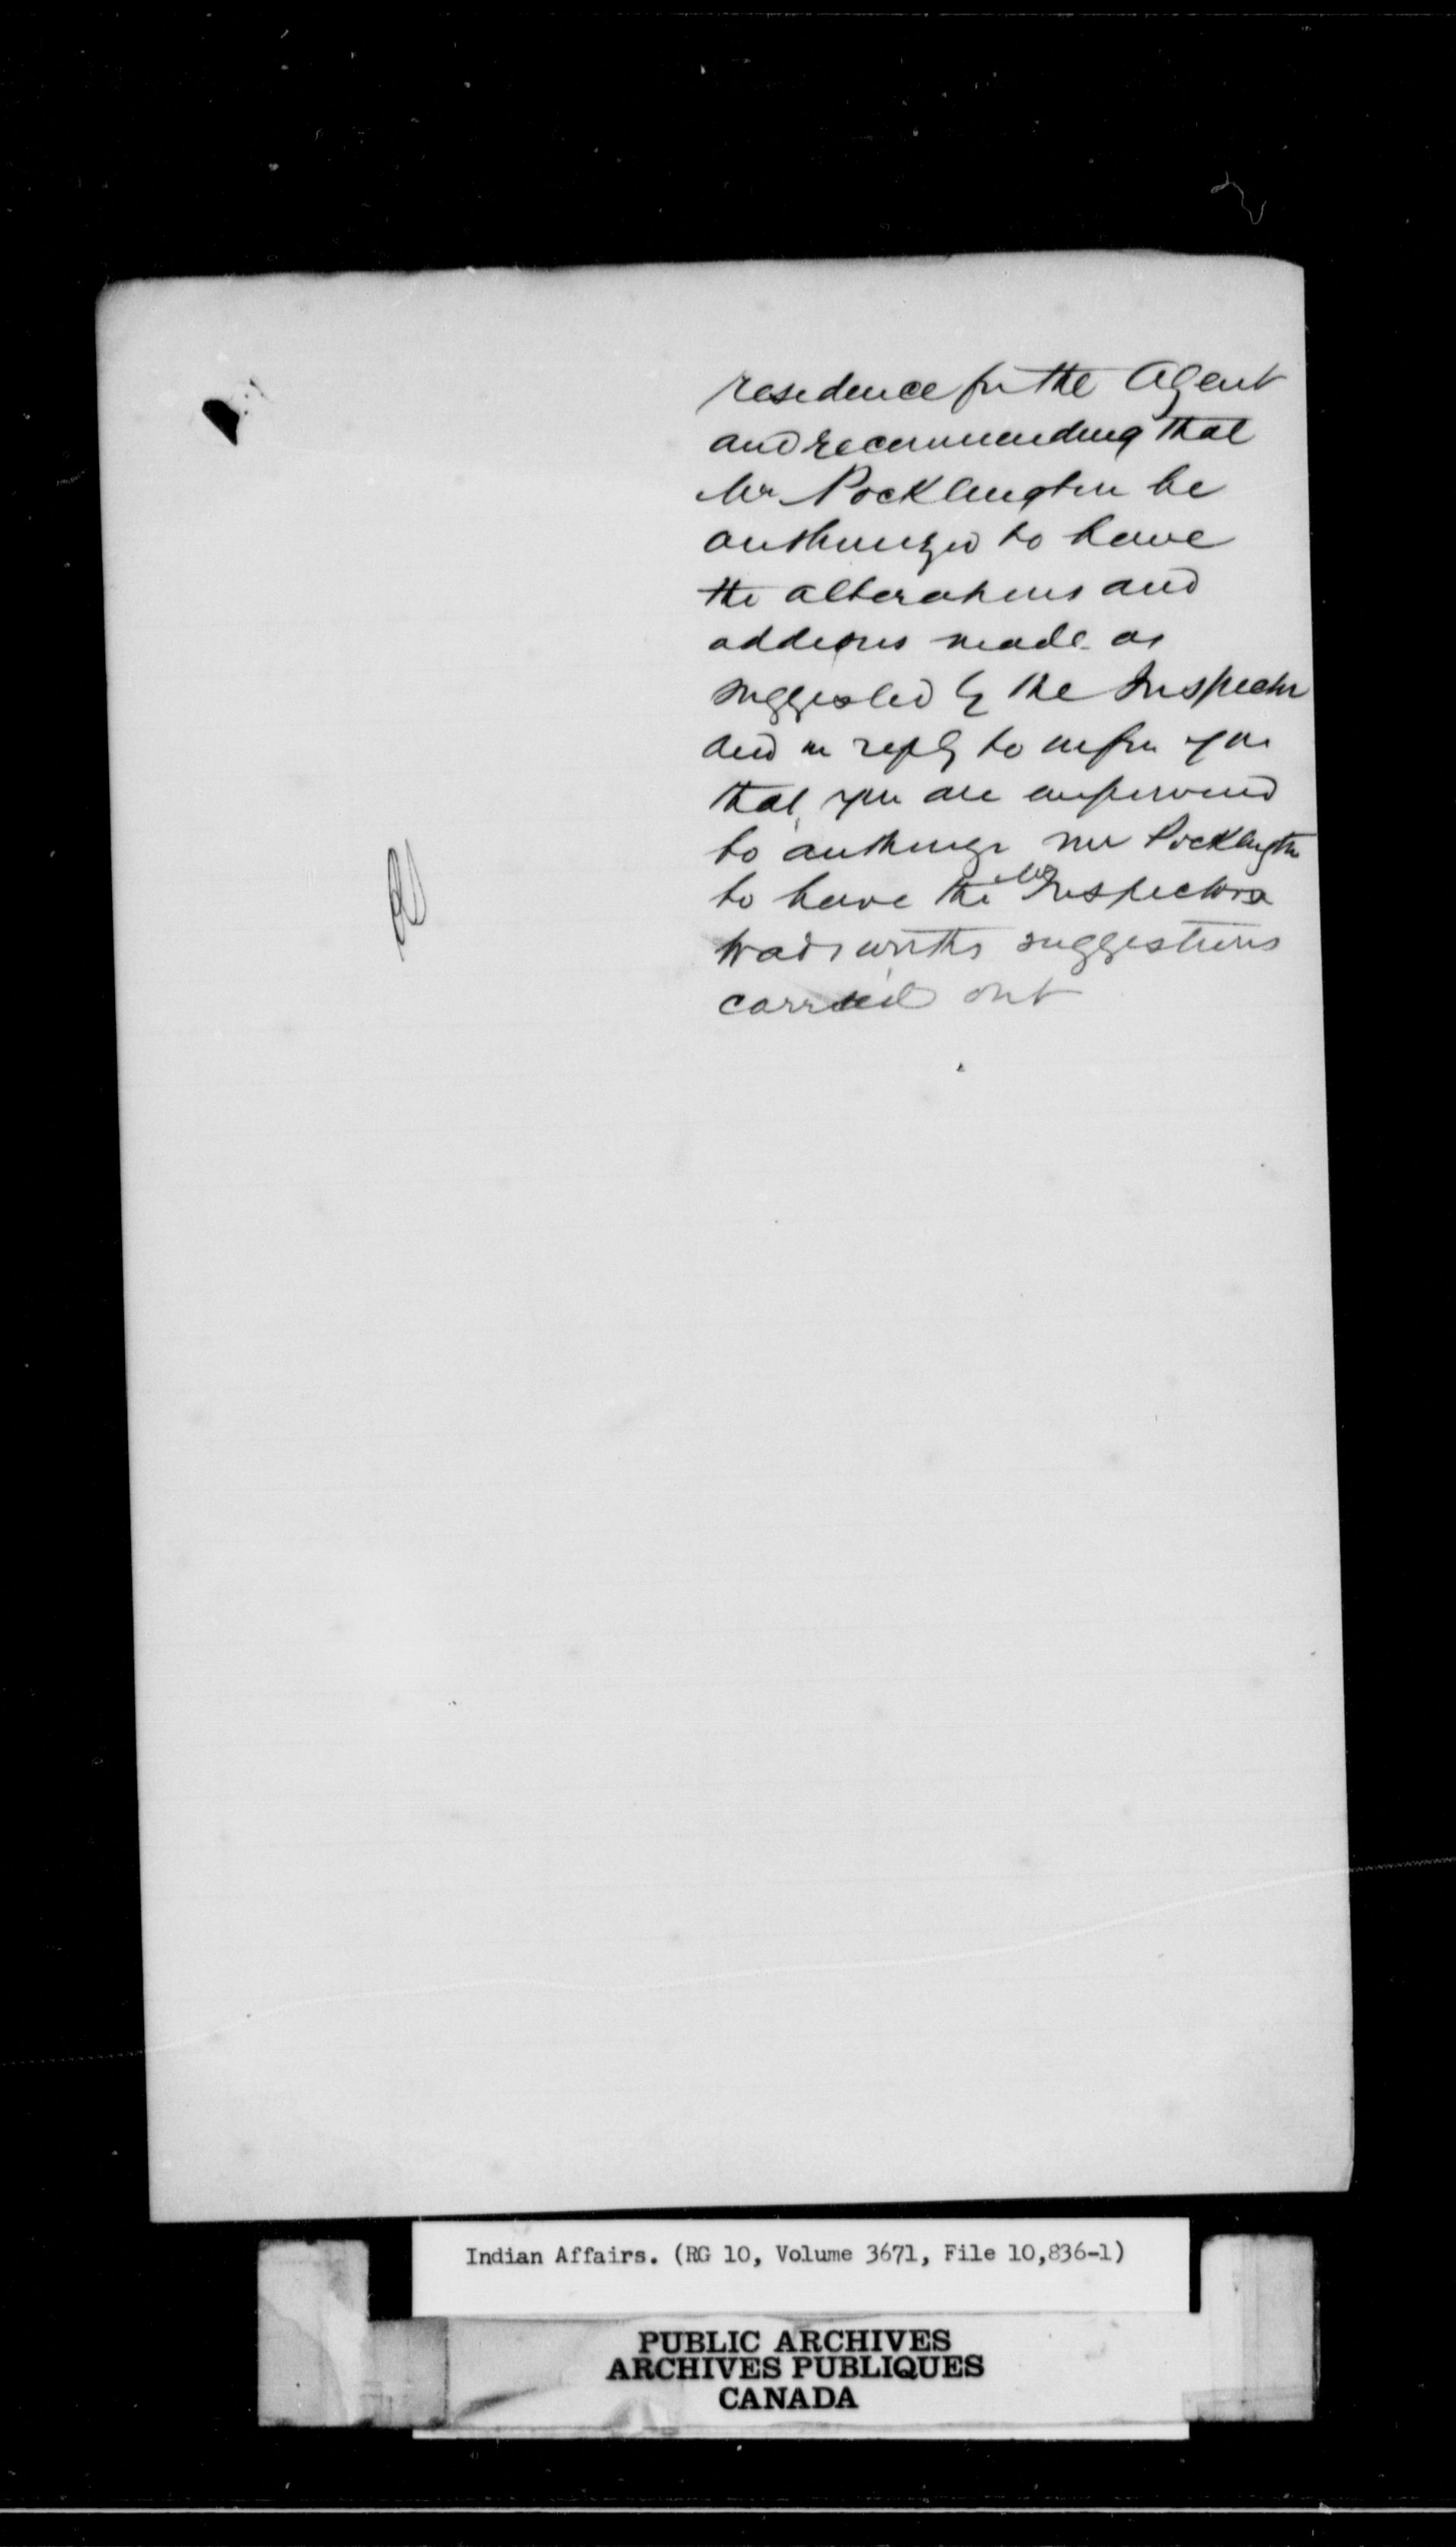 residence for the Agent
and recommending that
Mr Pocklington be
authorized to have
the alterations and
addions made as
suggested by the Inspector
and in reply to inform you
that you are empowered
to authorize Mr Pocklington
to have the Inspectors
Wadsworths suggestions
carried out
Indian Affairs. (RG 10, Volume 3671, File 10,836-1)
PUBLIC ARCHIVES
ARCHIVES PUBLIQUES
CANADA